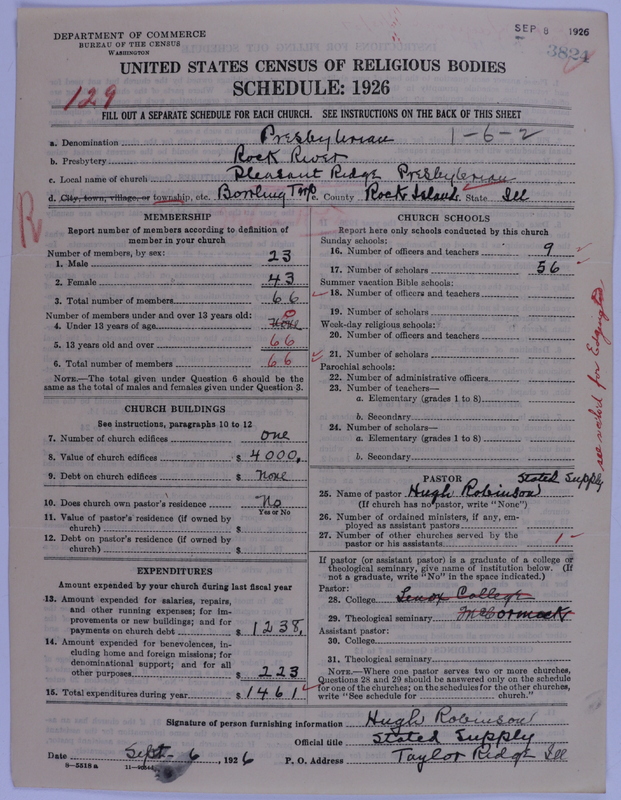 DEPARTMENT OF COMMERCE
BUREAU OF THE CENSUS
WASHINGTON
SEP 8 1926
3824
UNITED STATES CENSUS OF RELIGIOUS BODIES
SCHEDULE: 1926
129
FILL OUT A SEPARATE SCHEDULE FOR EACH CHURCH. SEE INSTRUCTIONS ON THE BACK OF THIS SHEET
a. Denomination Presbyterian 1-6-2
b. Presbytery Rock River
c. Local name of church Pleasant Ridge Presbyterian
d. City, town, village, or township, etc. Bowling Twp e. County Rock Island State Ill
R
MEMBERSHIP
Report number of members according to definition of
member in your church
Number of members, by sex:
1. Male 23
2. Female 43
3. Total number of members 66
Number of members under and over 13 years old:
4. Under 13 years of age None 0
5. 13 years old and over 66
6. Total number of members 66
NOTE.—The total given under Question 6 should be
same as the total of males and females given under Question 3.
CHURCH BUILDINGS
See instructions, paragraphs 10 to 12
7. Number of church edifices one
8. Value of church edifices $ 4000,
9. Debt on church edifices $ None
10. Does church own pastor's residence No
Yes or No
11. Value of pastor's residence (if owned by
church) $
12. Debt on pastor's residence (if owned by
church) $
EXPENDITURES
Amount expended by your church during last fiscal year
13. Amount expended for salaries, repairs,
and other running expenses; for im-
provements or new buildings; and for
payments on church debt $ 1238,
14. Amount expended for benevolences, in-
cluding home and foreign missions; for
denominational support; and for all
other purposes $ 223
15. Total expenditures during year $ 1461
CHURCH SCHOOLS
Report here only schools conducted by this church
Sunday schools:
16. Number of officers and teachers 9
17. Number of scholars 56
Summer vacation Bible schools:
18. Number of officers and teachers
19. Number of scholars
Week-day religious schools:
20. Number of officers and teachers
21. Number of scholars
Parochial schools:
22. Number of administrative officers
23. Number of teachers—
a. Elementary (grades 1 to 8)
b. Secondary
24. Number of scholars—
a. Elementary (grades 1 to 8)
b. Secondary
see sched for Edgington
PASTOR Stated Supply
25. Name of pastor Hugh Robinson
(If church has no pastor, write "None")
26. Number of ordained ministers, if any, em-
ployed as assistant pastors
27. Number of other churches served by the
pastor or his assistants 1
If pastor (or assistant pastor) is a graduate of a college or
theological seminary, give name of institution below. (If
not a graduate, write "No" in the space indicated.)
Pastor:
28. College Lenox College
29. Theological seminary McCormack
Assistant pastor:
30. College
31. Theological seminary
NOTE.—Where one pastor serves two or more churches,
Questions 28 and 29 should be answered only on the schedule
for one of the churches; on the schedules for the other churches,
write "See schedule for church."
Signature of person furnishing information Hugh Robinson
Official title Stated Supply
Date Sept 6, 1926 P. O. Address Taylor Ridge Ill
8—5518a